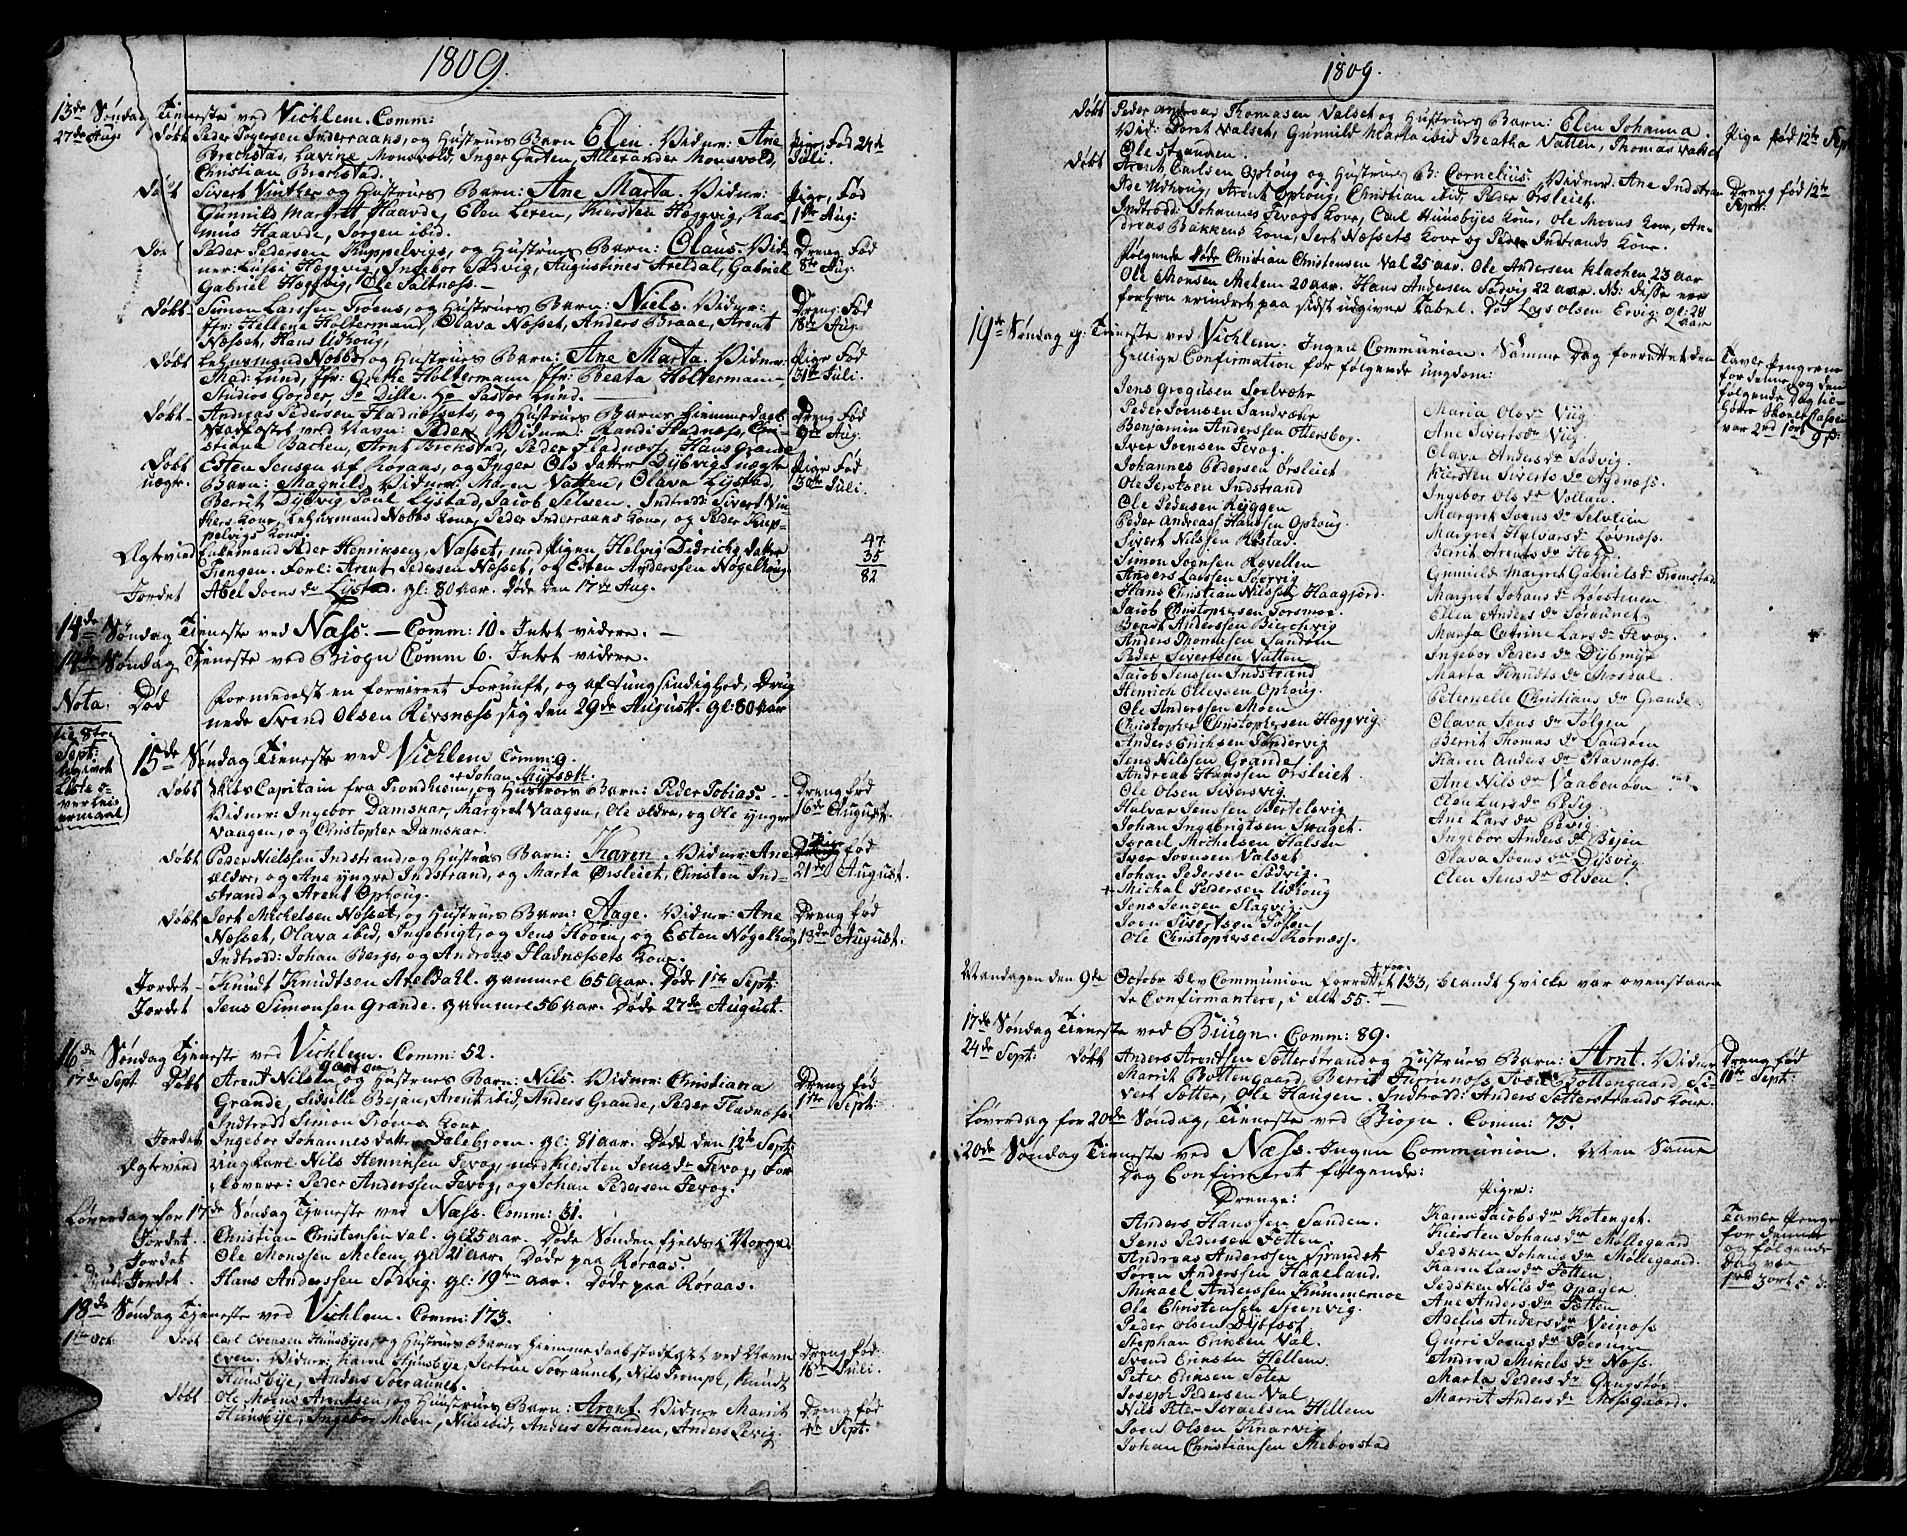 1809.
13de Søndag Tieneste ved Vichlem. Comm:
27de Aug: Døbt Peder Togersen Inderraans, og Hustrues Barn Elen. Vidner: Ane
Brechstad, Lavine Monsvold, Inger Garten, Allexander Monsvold,
Christian Brechstad.
Pige, Fød 24de
Juli.
Døbt Sivert Vinther og Hustrues Barn: Ane Marta. Vidner:
Gunnild Margrett Haavde, Elen Leren, Kiersten Heggvig, Ras-
mus Haavde, Jørgen ibid.
Pige, Fød
1ste Aug:
Døbt Peder Pedersen Kuppelvigs, og Hustrues Barn: Olaus. Vid-
ner: Lussi Hæggvig, Ingebor Sødvig, Augustines Areldal, Gabriel
Gabriel Heggvig, Ole Saltness.
Dreng Fød
8de Aug.
Døbt Simon Larssen Trøens, og Hustrues Barn: Niels. Vidner:
Jfr: Hellene Holtermand, Olava Næsset, Anders Braae, Arent
Næsset, Hans Udhoug.
Dreng Fød
18de Aug.
Døbt Lehnsmand Nobbs, og Hustrues Barn: Ane Marta. Vidner:
Mad: Lund, Jfr: Grethe Holtermann Jfr: Beata Holtermann
Studios Gorder, Dille. Hr Pastor Lund.
Pige Fød
31te Juli.
Døbt Andreas Pedersen Fladnæssets, og Hustrues Barns Hiemmedaab
Stadfæstet ved Navn: Peder. Vidner: Randi Fladness, Chri-
stiana Bachen, Arnt Brekstad, Peder Fladness, Hans Grande
Dreng Fød
9de Aug.
Døbt Esten Jensen af Røraas, og Inger Ols datter Dybvigs uægte
uægte. Barn: Magnild. Vidner: Maren Vatten, Olava Lystad,
Berrit Dybvig, Poul Lystad, Jacob Selsen. Indtrod: Sivert Vin-
thers Kone, Lehnsmand Nobbs Kone, Peder Inderraans Kone, og Peder Kup-
pelvigs Kone.
Pige Fød
30te Juli.
Ægtevied Enkemand Peder Henriksen Næsset, med Pigen Helvig Didrichs datter
Trengen. Forl: Arent Pedersen Næsset, og Esten Anderssen Nøgelhoug
47
35
82
Jordet Abel Joens dr Lystad. gl: 80 aar. Døde den 17de Aug.
14de Søndag Tieneste ved Næss. Comm: 10. Intet videre.
14de Søndag Tieneste ved Biogn Comm 6. Intet videre.
Nota. Død Formedelst en forvirret Fornuft, og af Tungsindighed, Drug
nede Svend Olsen Rivsnæss sig den 29de August. gl: 80 aar
15de Søndag Tieneste ved Vichlem Comm: 9.
+ Johan Myrsætt.
Døbt Skibs Capitain fra Trondhiem, og Hustrues Barn: Peder Tobias.
Vidner: Ingebor Damskar, Margret Vaagen, Ole ældre, og Ole yngre
Vaagen, og Christopher Damskar.
Dreng fød
16de August.
Døbt Peder Nielssen Indstrand, og Hustrues Barn: Karen. Vidner: Ane
ældre, og Ane yngre Indstrand, og Marta Ørsleiet, Christen Ind-
strand og Arent Ophoug.
Pige fød
21de August.
Døbt Jert Michelsen Næsset, og Hustrues Barn: Aage. Vidner: Ane
Næsset, Olava ibid, Ingebrigt, og Jens Hoven, og Esten Nøgelhoug
Indtrod: Johan Bergs, og Andreas Fladnæssets Kone.
Dreng fød
13de August.
Jordet Knudt Knudtsen Areldahl. gammel 65 aar. Døde 1ste Sept:
Jordet Jens Simonsen Grande. gammel 56 aar. Døde 27de August.
16de Søndag Tieneste ved Vichlem. Comm: 52.
17de Sept. Døbt Arent Nilsen og Hustrues Barn: Nils. Vidner: Christiana
Grande, Sidsille Bejan, Arent ibid, Anders Grande, Peder Fladnæss.
Indtrod Simon Trøens Kone
Dreng fød
1ste Sept:
Jordet Ingebor Johannes datter Dalebjoern. gl: 81 aar. Døde den 12te Sept:
Ægtevied Ungkarl Nils Henriksen Fevog, med Kiersten Jens dr Fevog, For
lovere: Peder Anderssen Fevog, og Johan Pedersen Fevog.
Løverdag for 17de Søndag Tieneste ved Næss. Comm: 51.
Jordet. Christian Christensen Val. gl 25 aar. Døde Søndenfields i Norge.
Jordet Ole Monssen Melem, gl 21 aar. Døde paa Røraas.
Jordet. Hans Anderssen Sødvig. gl: 19ten aar. Døde paa Røraas.
18de Søndag Tieneste ved Vichlem. Comm: 173.
1ste Oct. Døbt Carl Evensen Huusbyes, og Hustrues Barns Hiemmedaab stadfæstet ved Navn
Even. Vidner: Karen Huusbye, Sertroe Soeraunet, Nils Trompt, Knudt
Huusbye, Anders Soeraunet.
Dreng fød:
16de Juli.
Døbt Ole Moens Arentsen, og Hustrues Barn: Arent. Vidner Marrit
Huusbye, Ingebor Moen, Nils ibid, Anders Stranden, Anders Levig.
Dreng fød
4de Sept:
1809.
Døbt Peder Andreas Thomasen Valset og Hustrues Barn: Elen Johanna.
Vid: Doret Valset, Gunnild Marta ibid Beatha Vatten, Thomas Valset
Ole Stranden.
Pige fød 12te Sept
Døbt Arent Carlsen Ophoug og Hustrues B: Cornelius. Vidner: Ane Indstran
Ade Udhoug, Arent Ophoug, Christian ibid, Peder Ørsleiet.
Indtrod: Johannes Fevogs Kone, Carl Huusbyes Kone, Ole Moens Kone, An-
dreas Bakkens Kone, Jert Næssets Kone og Peder Indtrands Kone.
Dreng fød 12te
Sept:
Følgende Døde Christian Christensen Val 25 aar. Ole Andersen Klachen 23 aar
Ole Monsen Melem 20 aar. Hans Andersen Sødvig 22 aar. NB: disse ere
forhen erindret paa sidst udgivne Tabel. Død Lars Olsen Ervig: gl: 28
aar
19de Søndag e. Tieneste ved Vichlem. Ingen Communion. Samme Dag forrettet den
Hellige Confirmation for følgende ungdom:
Tavle Pengene
for denne og den
følgende Dag tie-
Jens Gregusen Soelvohr
Peder Joensen Sandvohr
Benjamin Anderssen Ottersbog.
Iver Joensen Fevog.
Johannes Pedersen Ørsleiet
Ole Jertssen Indstrand
Ole Pedersen Ryggen
Peder Andreass Hanssen Ophoug.
Sivert Nilssen Røstad.
Simon Joensen Revellen
Anders Larssen Soervig
Hans Christian Nilssen Haagjord.
Jacob Christophersen Forsmoe.
Bendt Anderssen Bierchvig
Anders Thomassen Sandøen
Peder Sivertsen Vatten
Jacob Jenssen Indstrand
Henrich Ollevsen Ophoug.
Ole Anderssen Moen
Christopher Christophersen Heggvig.
Anders Erichsen Søndervig
Jens Nilssen Grande
Andreas Hanssen Ørsleiet.
Ole Olsen Siversvig.
Halvar Jenssen Bertelsvig
Johan Ingebrigtsen Skaget.
Israel Michelsen Halsen
Iver Joensen Valset
Johan Pedersen Sødvig.
Michal Pedersen Udhoug
Jens Jensen Slagvig.
Joen Sivertsen Fossen
Ole Christophersen Rornæss.
Maria Ols dr Viig.
Ane Siverts dr Viig.
Olava Anders dr Sødvig.
Kiersten Siverts dr Nydnæss.
Ingebor Ols dr Vollan.
Margret Joens dr Selvlien
Margret Halvars dr Løvnøss.
Berrit Arents dr Houg.
Gunnild Margret Gabriels dr Fremstad
Margret Johans dr Roestenen
Ellen Anders dr Søraunet.
Marta Catrine Lars dr Fevog.
Ingebor Peders dr Dybmyr
Marta Knudts dr Mosdal.
Peternelle Christians dr Grande.
Olava Jens dr Følgen
Berrit Thomas dr Sandøen
Karen Anders dr Stavnøss.
Ane Nils dr Vaabenøen
Elen Lars dr Pesig.
Ane Lars dr Pevig.
Ingebor Anders dr Bejen
Olava Joens dr Dybvig
Elen Jens dr Olsen.
Mandagen den 9de Octobr blev Communion forrettet for 133, blandt hvilke var ovenstaaen
de Confirmantere, i alt 55.
17de Søndag Tieneste ved Biugn. Comm: 89.
24de Sept: Døbt Anders Arentssen Sætterstrand og Hustrues Barn: Arnt. Vidner
Marrit Bottengaard, Berrit Fururnøss, Iver Bottengaard, Si-
vert Sætter, Ole Haugen. Indtrod: Anders Sætterstrands Kone.
Dreng fød
10de Sept:
Løverdag for 20de Søndag, Tieneste ved Biogn. Comm: 75.
20de Søndag Tieneste ved Næss. Ingen Communion. Men Samme
Dag Confirmeret følgende:
Drenge:
Anders Hanssen Sanden.
Jens Pedersen Føtten.
Andreas Anderssen Sprendst
Søren Anderssen Haaeland.
Mikael Anderssen Krummemoe
Ole Christensen Steenvig.
Peder Olsen Dybfest
Stephan Eriksen Val.
Svend Eriksen Hellem.
Peter Eriksen Sæter
Joseph Pedersen Val
Nils Peter Israelsen Hellem
Joen Olsen Knarvig
Johan Christiansen Meborstad
Piger:
Karen Jacobs dr Kotenget.
Kiersten Johans dr Møllegaard
Sedsken Johans dr Møllegaard.
Karen Lars dr Føtten.
Sedsken Nils dr Opager
Ane Anders dr Føtten
Adelus Anders dr Veinøss
Gurri Joens dr Boerum
Andrea Mikels dr Næss.
Marta Peders dr Gengstøe
Marrit Anders dr Mossgaard.
Tavle Penge
for denne
og følgende
Dag var
1rd 3ort 5